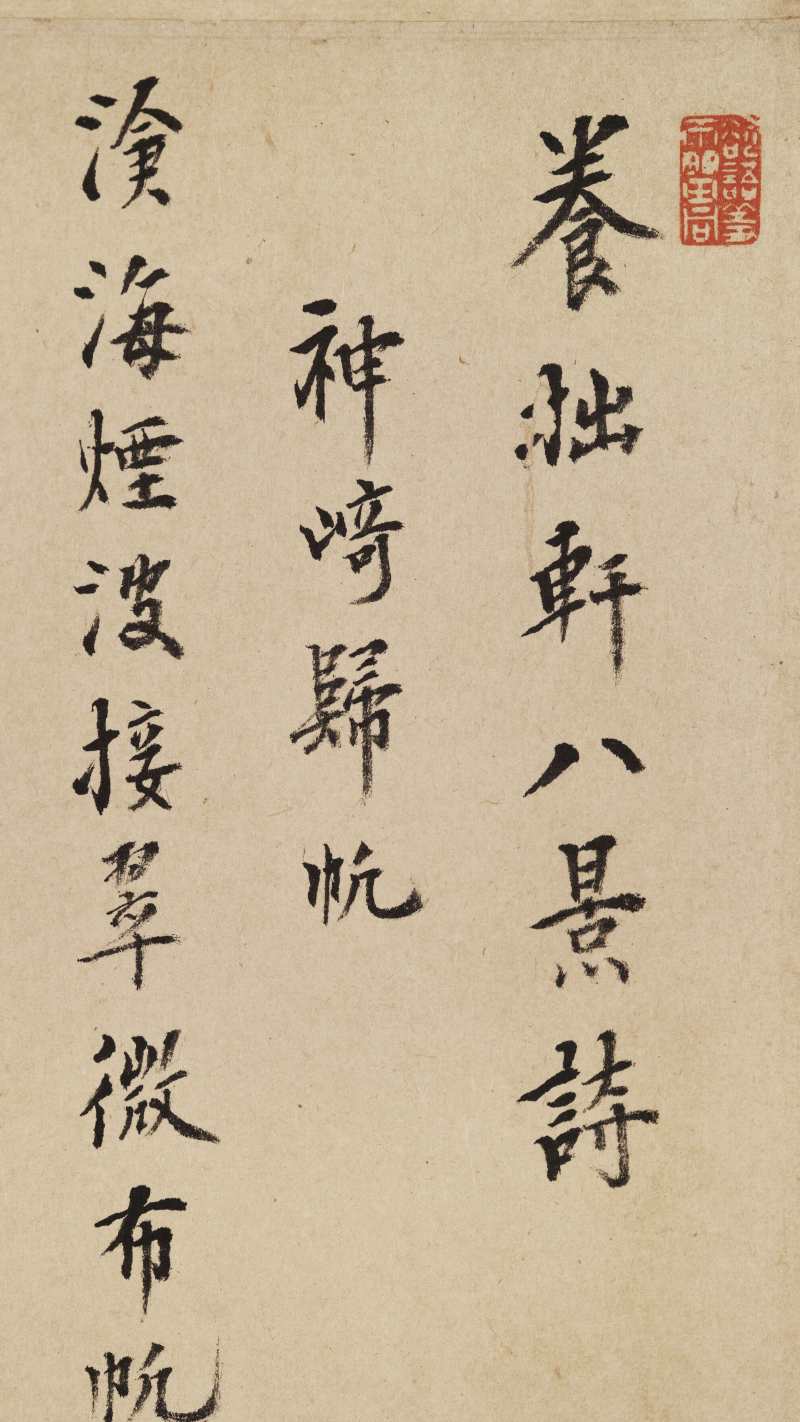 養拙軒八景詩
神崎歸帆
滄海煙波接翠微布帆